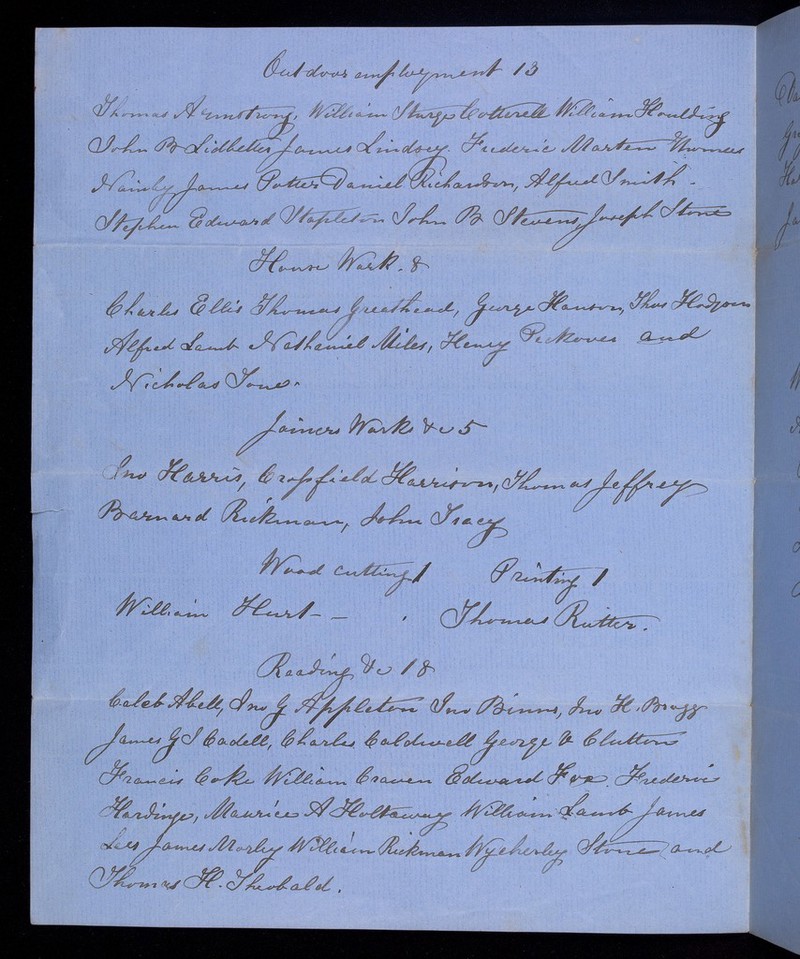 Outdoor employment 13
Thomas Armstrong, William Sturge Cotterell William Houlding
John B Lidbetter James Lindsey. Frederic Marten Thomas
Nainby James Potter Daniel Richardson, Alfred Smith -
Stephen Edward Stapleton John B Stevens, Joseph Stone
House Work. 8
Charles Ellis Thomas Greathead, George Hanson, Thos Hodgson
Alfred Lamb Nathaniel Miles, Henry Pickover and
Nicholas Tone.
Joiners Work &c 5
Jno Harris, Crossfield Harrison, Thomas Jeffrey
Barnard Rickman, John Tracy
Wood cutting 1 Printing 1
William Hurt - Thomas Rutter.
Reading &c 18
Caleb Abell, Jno G Appleton Jno Binns, Jno H. Bragg
James G S Cadell, Charles Caldwell George V Clutton
Francis Coke William Craven Edward Fox. Frederic
Hardinge, Maurice A Holtaway William Lamb James
Lees James Morley William Rickman Wycherley Stone and
Thomas H. Theobald.